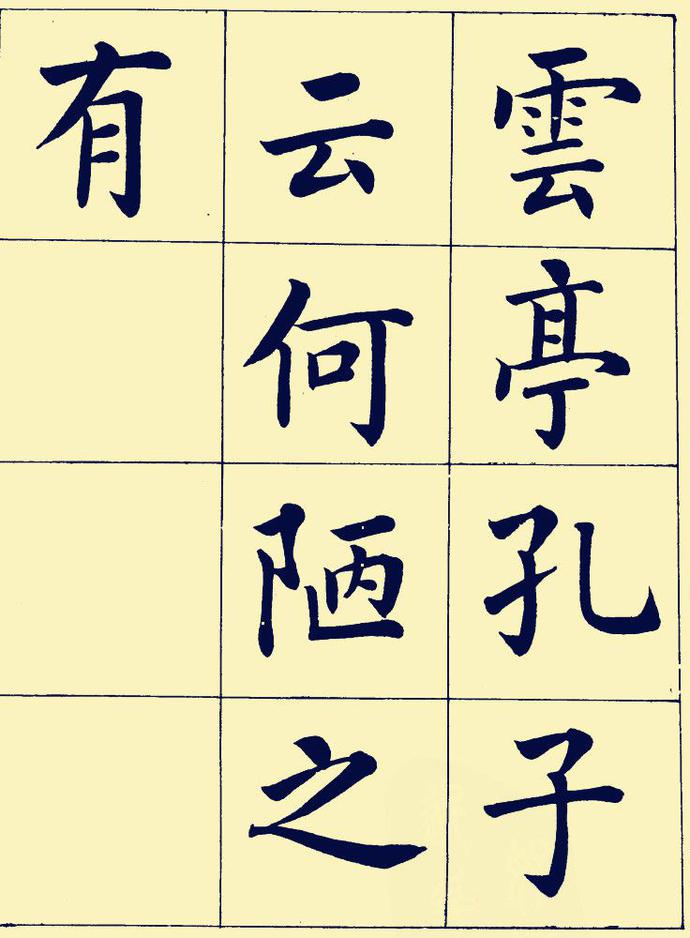 雲亭孔子
云何陋之
有